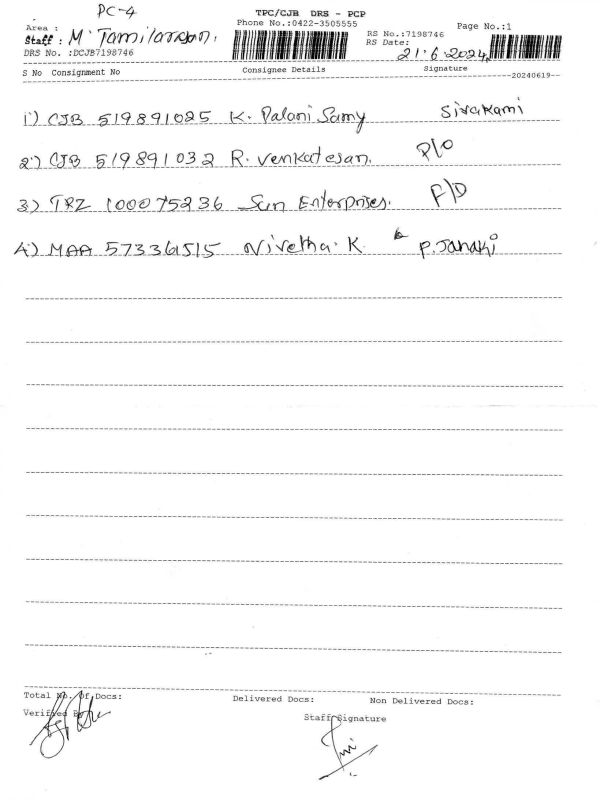 PC-4
TPC/CJB DRS - PCP
Phone No.:0422-3505555
Page No.:1
Area :
Staff : M. Tamilarasan.
RS No.:7198746
RS Date: 21.6.2024,
DRS No. :DCJB7198746
S No Consignment No Consignee Details Signature
20240619
1) CJB 519891025 K. Palani Samy Sivakami
2) CJB 519891032 R. Venkatesan. P/O
3) TRZ 100075236 Sun Enterprises. F/D
4) MAA 573361515 Nivetha. K. P. Janaki
Total No. Of Docs: Delivered Docs: Non Delivered Docs:
Verified By
Staff Signature